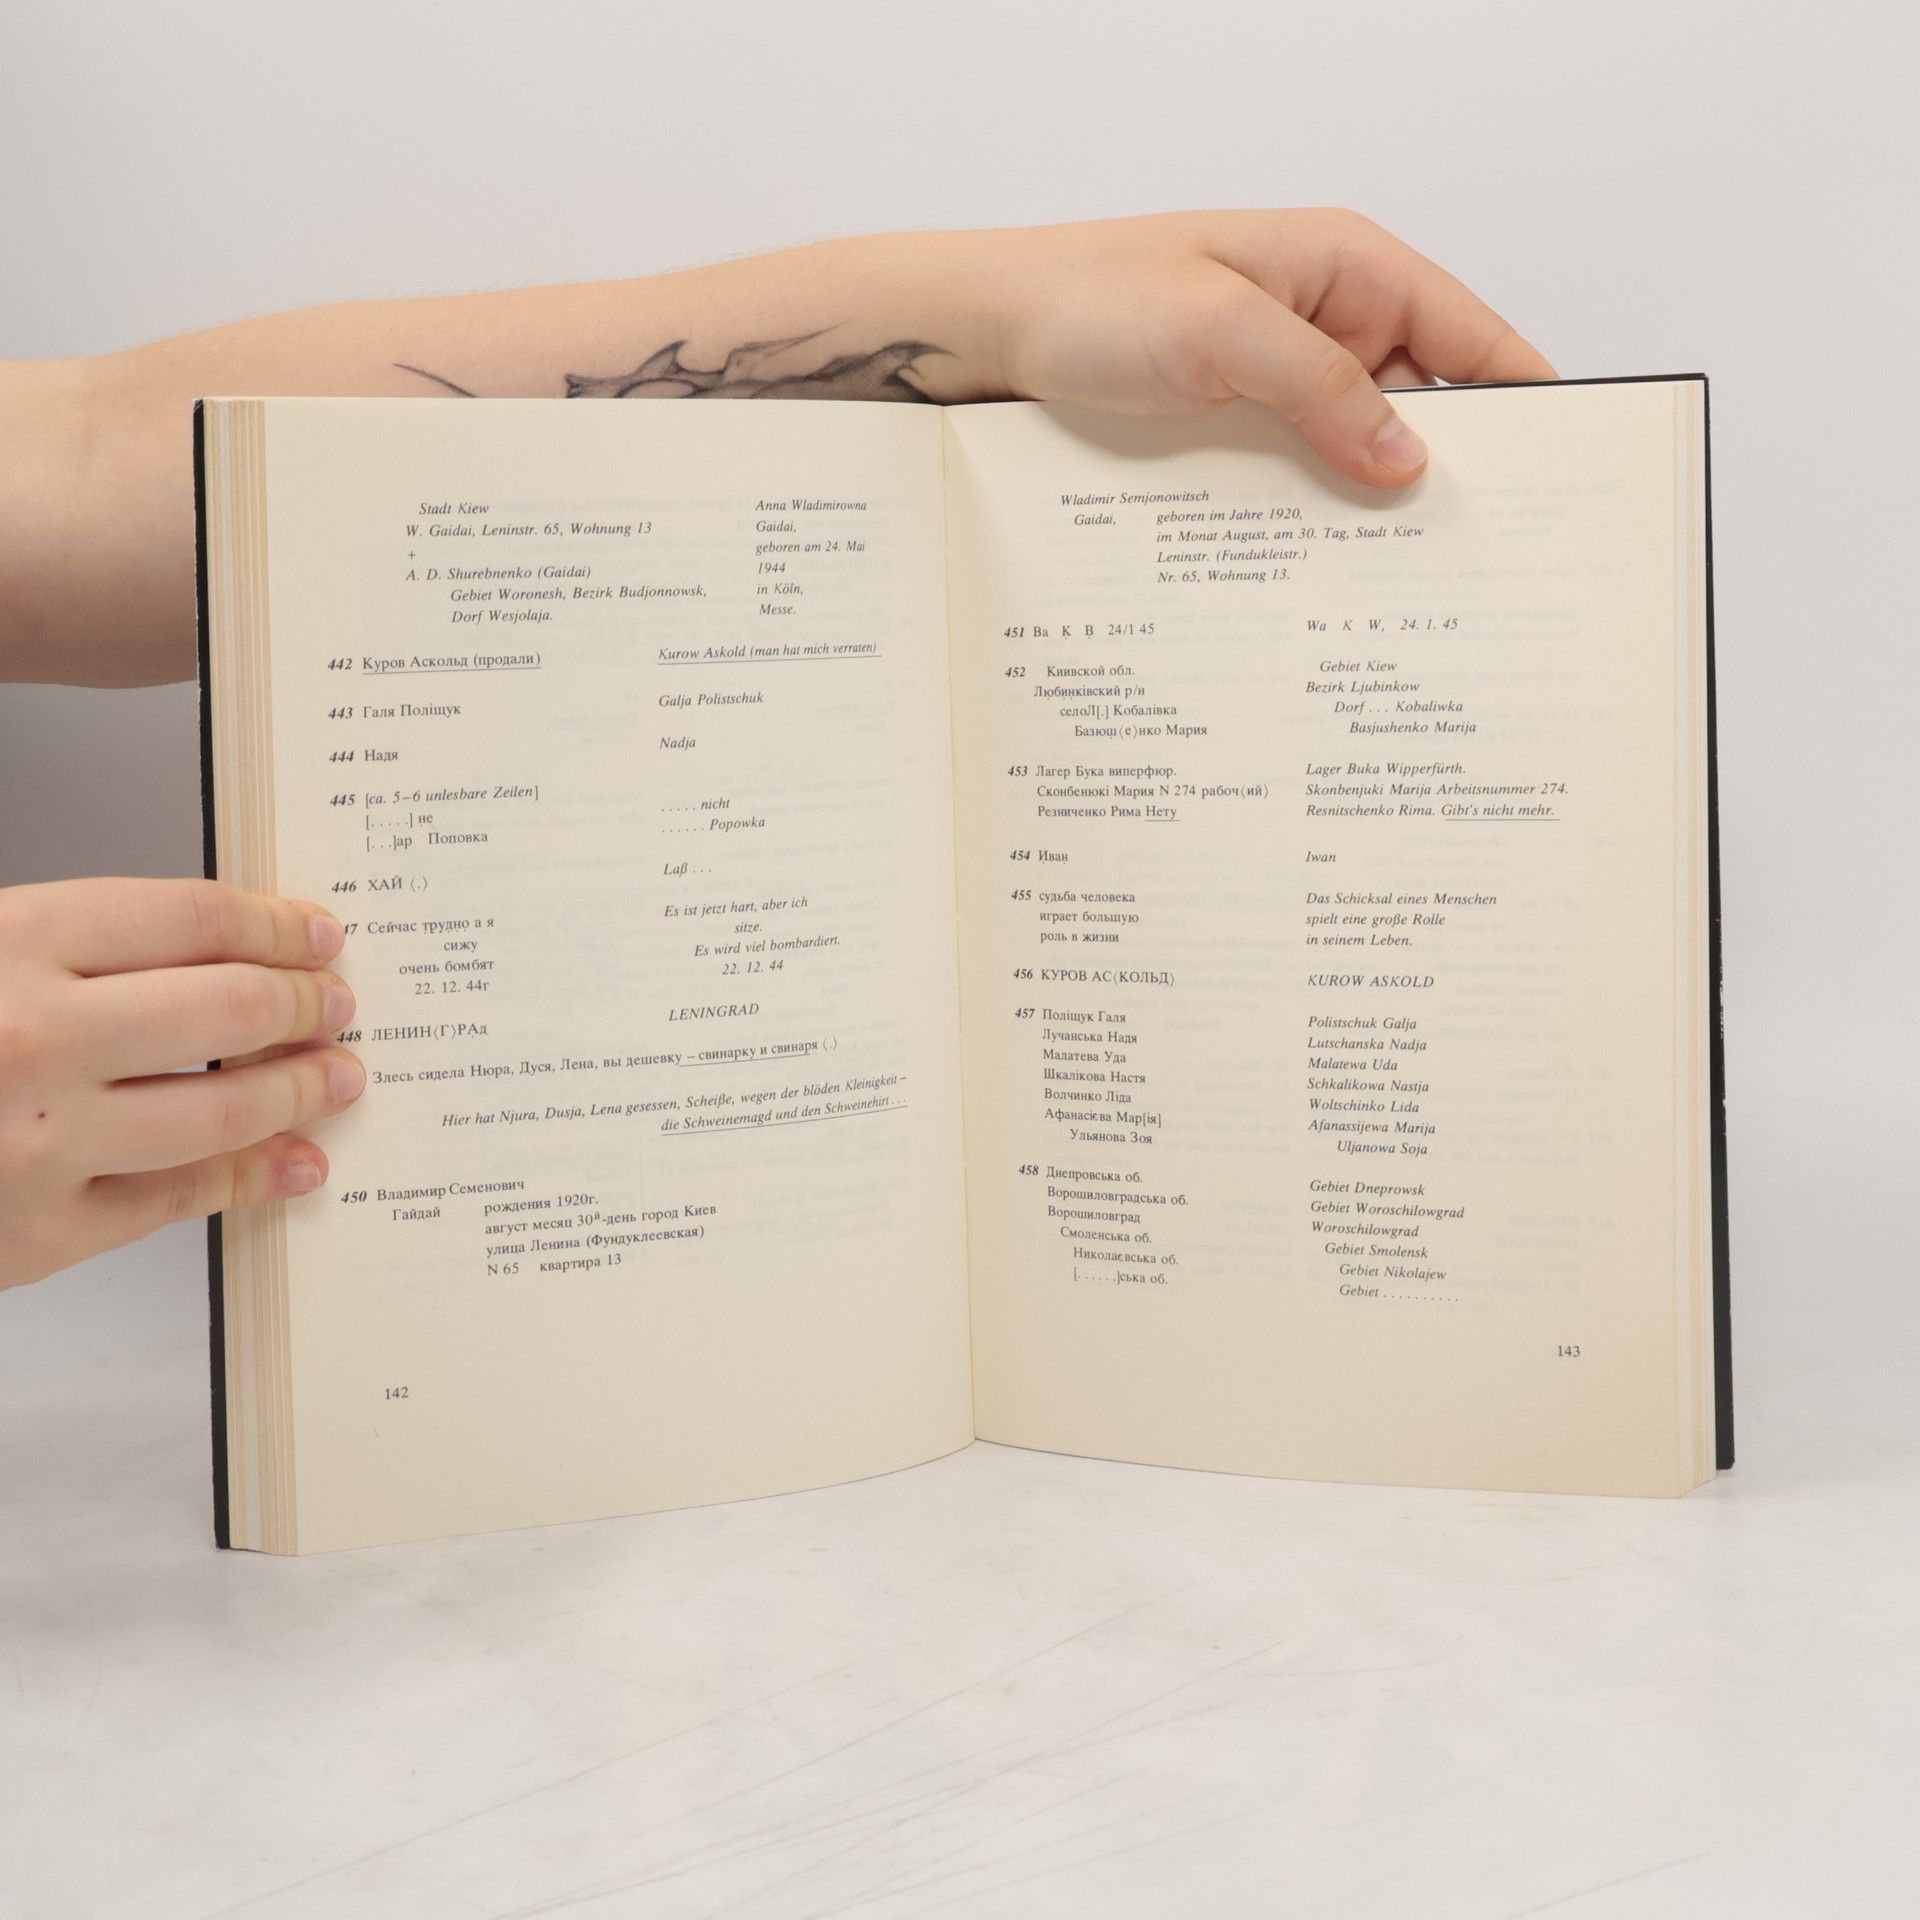 Stadt Kiew
W. Gaidai, Leninstr. 65, Wohnung 13
+
A. D. Shurebnenko (Gaidai)
Gebiet Woronesh, Bezirk Budjonnowsk,
Dorf Wesjolaja.
Anna Wladimirowna
Gaidai,
geboren am 24. Mai
1944
in Köln,
Messe.
442 Куров Аскольд (продали)
Kurow Askold (man hat mich verraten)
443 Галя Поліщук
Galja Polistschuk
444 Надя
Nadja
445 [ca. 5–6 unlesbare Zeilen]
[.....] не
[...]ар Поповка
..... nicht
...... Popowka
446 ХАЙ ⟨.⟩
Laß ...
47 Сейчас трудно а я
сижу
очень бомбят
22. 12. 44г
Es ist jetzt hart, aber ich
sitze.
Es wird viel bombardiert.
22. 12. 44
448 ЛЕНИН⟨Г⟩РАд
LENINGRAD
Злесь сидела Нюра, Дуся, Лена, вы дешевку – свинарку и свинаря ⟨.⟩
Hier hat Njura, Dusja, Lena gesessen, Scheiße, wegen der blöden Kleinigkeit –
die Schweinemagd und den Schweinehirt ...
450 Владимир Семенович
Гайдай рождения 1920г.
август месяц 30й-день город Киев
улица Ленина (Фундуклеевская)
N 65 квартира 13
142
Wladimir Semjonowitsch
Gaidai, geboren im Jahre 1920,
im Monat August, am 30. Tag, Stadt Kiew
Leninstr. (Fundukleistr.)
Nr. 65, Wohnung 13.
451 Ва Ḳ Ḅ 24/1 45
Wa K W, 24. 1. 45
452 Киивской обл.
Любинківский р/н
селоЛ[.] Кобалівка
Базюш⟨е⟩нко Мария
Gebiet Kiew
Bezirk Ljubinkow
Dorf ... Kobaliwka
Basjushenko Marija
453 Лагер Бука виперфюр.
Сконбенюкі Мария N 274 рабоч⟨ий⟩
Резниченко Рима Нету
Lager Buka Wipperfürth.
Skonbenjuki Marija Arbeitsnummer 274.
Resnitschenko Rima. Gibt's nicht mehr.
454 Иван
Iwan
455 судьба человека
играет большую
роль в жизни
Das Schicksal eines Menschen
spielt eine große Rolle
in seinem Leben.
456 КУРОВ АС⟨КОЛЬД⟩
KUROW ASKOLD
457 Поліщук Галя
Лучанська Надя
Малатева Уда
Шкалікова Настя
Волчинко Ліда
Афанасієва Мар[ія]
Ульянова Зоя
Polistschuk Galja
Lutschanska Nadja
Malatewa Uda
Schkalikowa Nastja
Woltschinko Lida
Afanassijewa Marija
Uljanowa Soja
458 Днепровська об.
Ворошиловградська об.
Ворошиловград
Смоленська об.
Николаєвська об.
[......]ська об.
Gebiet Dneprowsk
Gebiet Woroschilowgrad
Woroschilowgrad
Gebiet Smolensk
Gebiet Nikolajew
Gebiet ..........
143